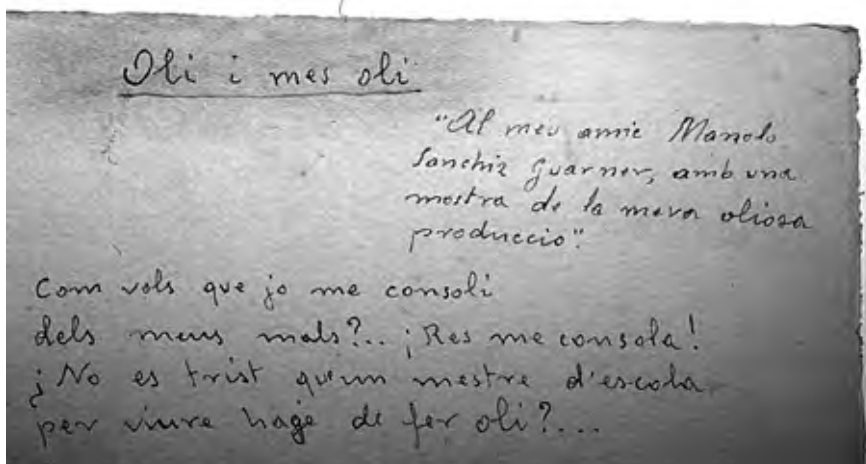 Oli i mes oli
"Al meu amic Manolo
Sanchiz Guarner, amb una
mostra de la meva oliosa
produccio".
Com vols que jo me consoli
dels meus mals?.. ¡Res me consola!
¡No es trist qu'un mestre d'escola
per viure hage de fer oli?....